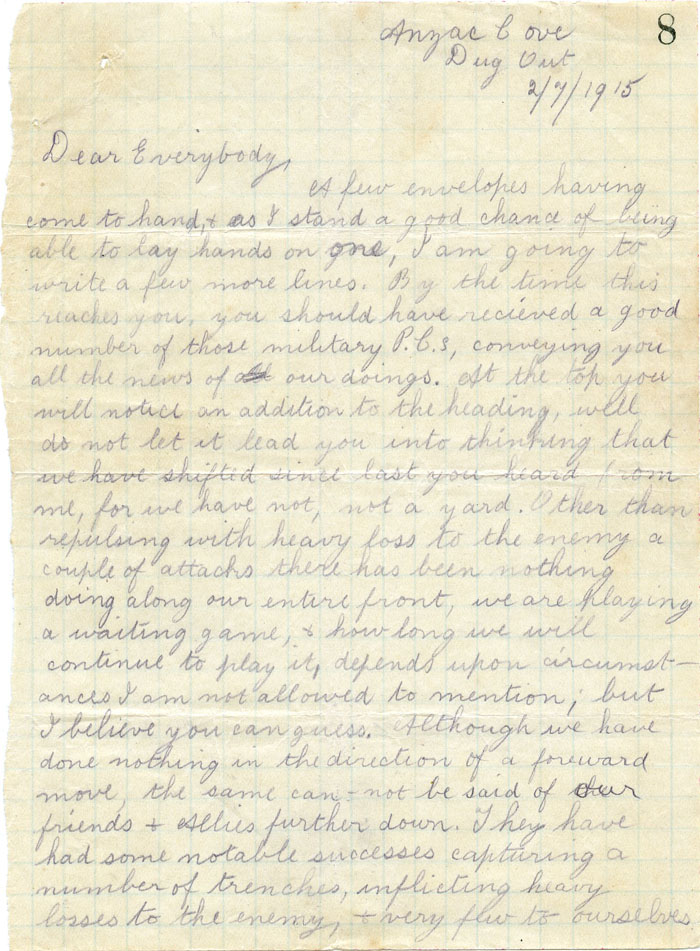 8
Anzac Cove
Dug Out
2/7/1915
Dear Everybody,
A few envelopes having
come to hand, & as I stand a good chance of being
able to lay hands on one, I am going to
write a few more lines. By the time this
reaches you, you should have recieved a good
number of those military P.C.s, conveying you
all the news of our doings. At the top you
will notice an addition to the heading, well
do not let it lead you into thinking that
we have shifted since last you heard from
me, for we have not, not a yard. Other than
repulsing with heavy loss to the enemy a
couple of attacks there has been nothing
doing along our entire front, we are playing
a waiting game, & how long we will
continue to play it, depends upon circumst-
ances I am not allowed to mention; but
I believe you can guess. Although we have
done nothing in the direction of a foreward
move, the same can-not be said of our
friends & Allies further down. They have
had some notable successes capturing a
number of trenches, inflicting heavy
losses to the enemy, & very few to ourselves